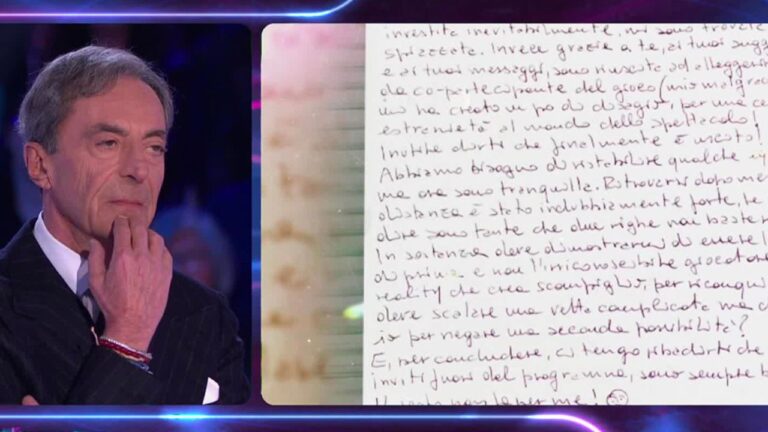 investita inevitabilmente, mi sono trovata
spiazzata. Invece grazie a te, ai tuoi sugg
e ai tuoi messaggi, sono riuscita ad alleggerir
da co-partecipante del gioco (mio malgrado
ha creato un po' di disagio, per una ce
estraneità al mondo dello spettacolo!
Inutile dirti che finalmente è uscito!
Abbiamo bisogno di ristabilire qualche
ma ora sono tranquilla. Ritrovarsi dopo me
distanza è stato indubbiamente forte, te
dire sono tante che due righe non baster
In sostanza deve dimostrarmi di essere l
di prima e non l'irriconoscibile giocatore
reality che crea scompiglio, per riconqui
deve scalare una vetta complicata ma c
io per negare una seconda possibilità?
E, per concludere, ci tengo ribadirti che
inviti fuori del programma, sono sempre b
per me!